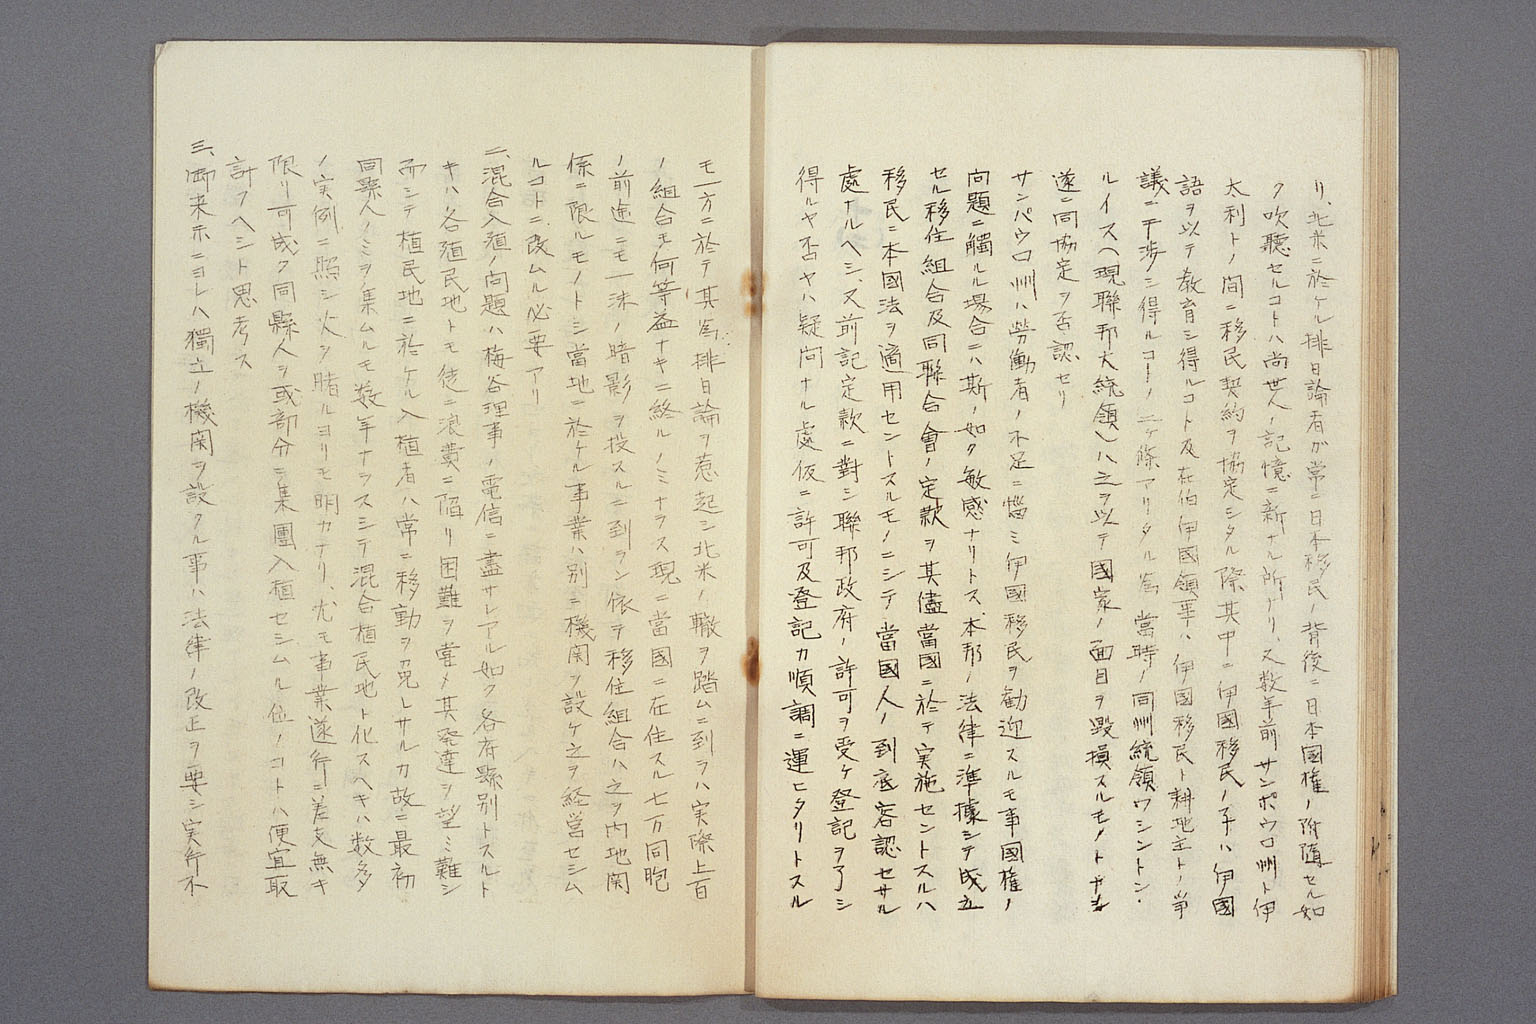 リ、北米ニ於ケル排日論者ガ常ニ日本移民ノ背後ニ日本國権ノ附随セル如
ク吹聴セルコトハ尚世人ノ記憶ニ新ナル所ナリ、又数年前サンポウロ州ト伊
太利トノ間ニ移民契約ヲ協定シタル際其中ニ伊國移民ノ子ハ伊國
語ヲ以テ教育シ得ルコト及在伯伊國領事ハ伊国移民ト耕地主トノ爭
議ニ干渉シ得ルコトノ二ケ條アリタル為當時ノ同州統領ワシントン・
ルイス(現聯邦大統領)ハ之ヲ以テ國家ノ面目ヲ毀損スルモノトナシ
遂ニ同協定ヲ否認セリ
サンパウロ州ハ労働者ノ不足ニ悩ミ伊國移民ヲ勧迎スルモ事國権ノ
問題ニ觸ルル場合ニハ斯ノ如ク敏感ナリトス、本邦ノ法律ニ準據シテ成立
セル移住組合及同聯合會ノ定款ヲ其儘當國ニ於テ実施セントスルハ
移民ニ本國法ヲ適用セントスルモノニシテ當國人ノ到底容認セサル
處ナルヘシ、又前記定款ニ對シ聯邦政府ノ許可ヲ受ケ登記ヲ了シ
得ルヤ否ヤハ疑问ナル處仮ニ許可及登記カ順調ニ運ヒタリトスル
モ一方ニ於テ其為排日論ヲ惹起シ北米ノ轍ヲ踏ムニ到ラハ実際上百
ノ組合モ何等益ナキニ終ルノミナラス現ニ當國ニ在住スル七万同胞
ノ前途ニモ一沫ノ暗影ヲ投スルニ到ラン依テ移住組合ハ之ヲ内地関
係ニ限ルモノトシ當地ニ於ケル事業ハ別ニ機関ヲ設ケ之ヲ経営セシム
ルコトニ改ムル必要アリ
二、混合入殖ノ问題ハ梅谷理事ノ電信ニ盡サレアル如ク各府縣別トスルト
キハ各殖民地トモ徒ニ浪費ニ陥リ困難ヲ嘗メ其発達ヲ望ミ難シ
而シテ植民地ニ於ケル入植者ハ常ニ移動ヲ免レサルカ故ニ最初
同縣人ノミヲ集ムルモ数年ナラスシテ混合植民地ト化スヘキハ数多
ノ実例ニ照シ火ヲ睹ルヨリモ明カナリ、尤モ事業遂行ニ差支無キ
限リ可成ク同縣人ヲ或部分ニ集團入植セシムル位ノコトハ便宜取
計フヘシト思考ス
三、御来示ニヨレハ獨立ノ機関ヲ設クル事ハ法律ノ改正ヲ要シ実行不